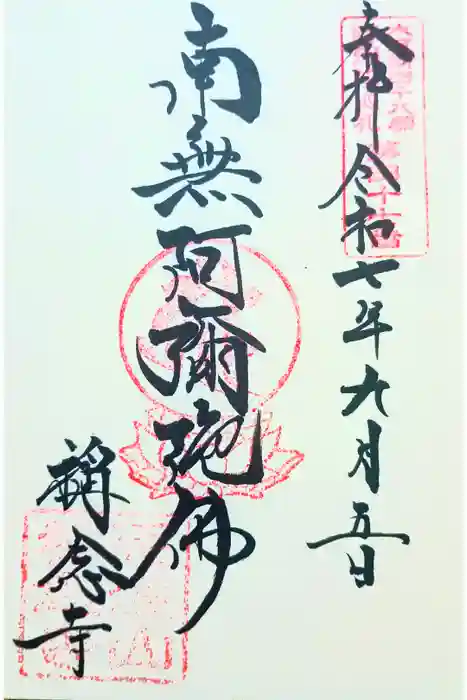 奉拝 令和七年九月五日
南無阿彌陀佛
稱念寺